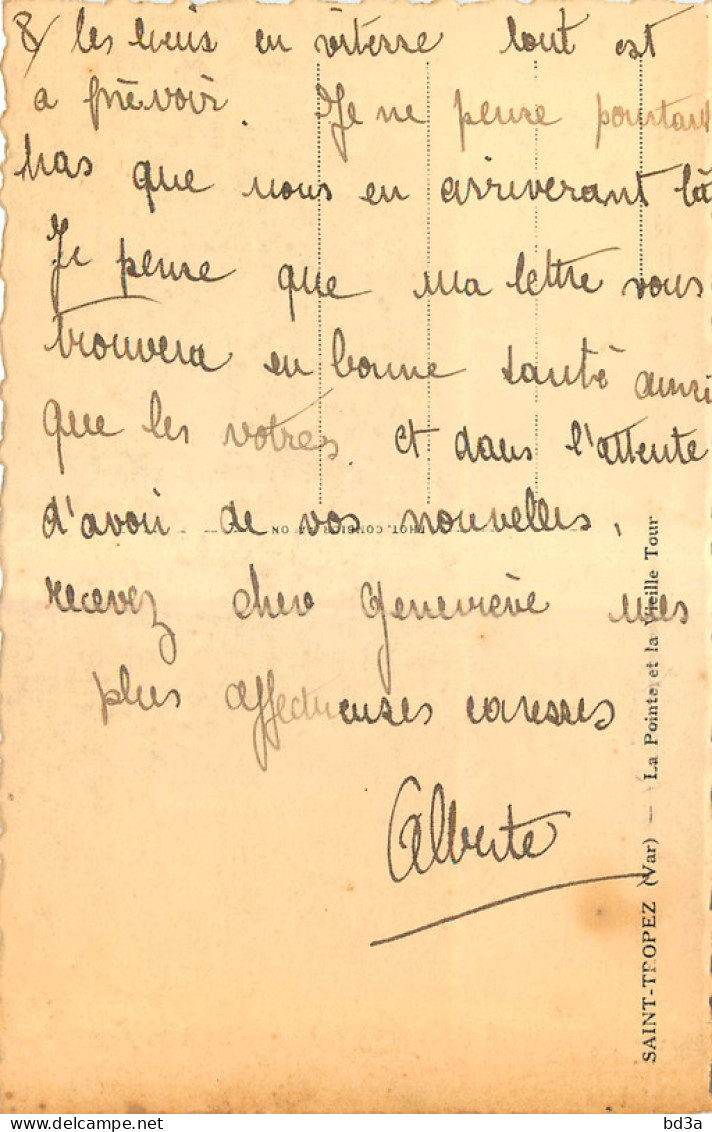 8/ les lieux en vitesse tout est
a prévoir. Je ne pense pourtant
pas que nous en arriverant là
Je pense que ma lettre vous
trouvera en bonne santé aussi
que les votres. et dans l'attente
d'avoir de vos nouvelles,
recevez cher Geneviève mes
plus affectueuses caresses
Alberte
SAINT-TROPEZ (Var) — La Pointe et la Vieille Tour
PHOT. COMBIER
bd3a